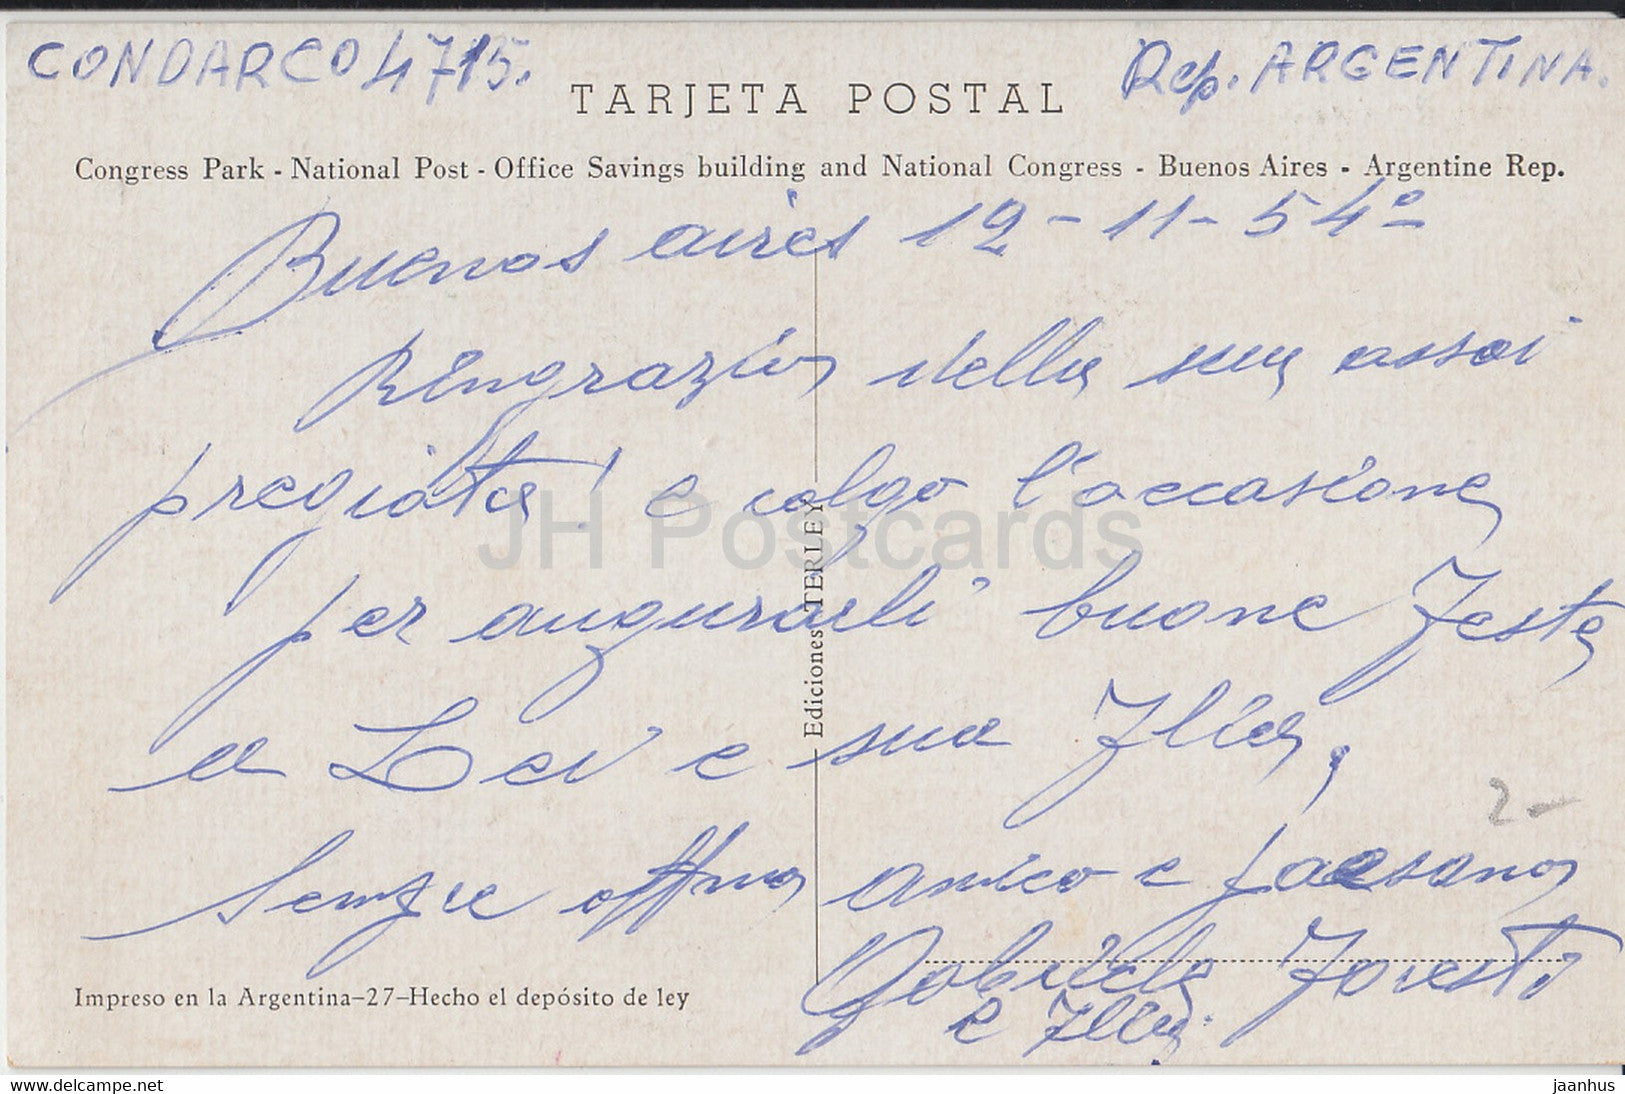 CONDARCO 4715.
Rep. ARGENTINA.
TARJETA POSTAL
Congress Park - National Post - Office Savings building and National Congress - Buenos Aires - Argentine Rep.
Buenos aires 12-11-54º
Ringrazio della sua assai
pregiata! e colgo l'occasione
per augurarli buone Feste
a Lei e sua
Sempre amico e paesano
Gabriele Foresti
e
Ediciones TERLEY
Impreso en la Argentina–27–Hecho el depósito de ley
2-
JH Postcards
delcampe.net
jaanhus